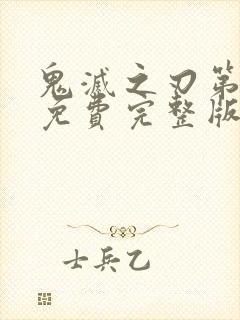 鬼滅之刃第
免費完整版
士兵乙